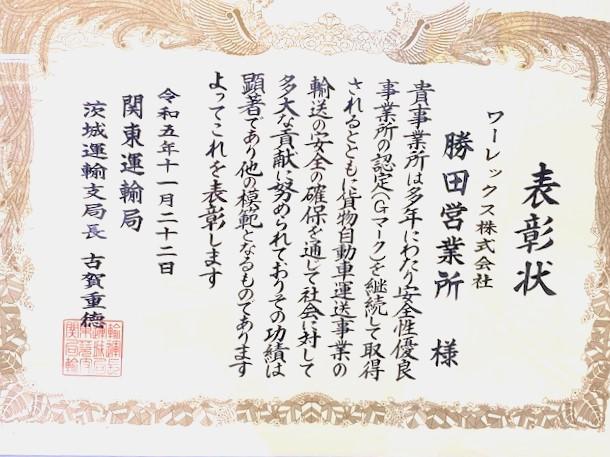 表彰状
ワーレックス株式会社
勝田営業所 様
貴事業所は多年にわたり安全性優良
事業所の認定(Gマーク)を継続して取得
されるとともに貨物自動車運送事業の
輸送の安全の確保を通じて社会に対して
多大な貢献に努められておりその功績は
顕著であり他の模範となるものであります
よってこれを表彰します
令和五年十一月二十二日
関東運輸局
茨城運輸支局長 古賀重徳